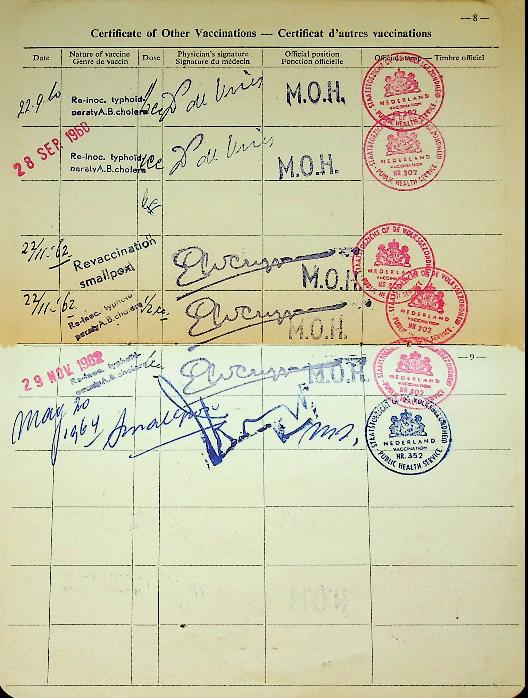 — 8 —
Certificate of Other Vaccinations — Certificat d'autres vaccinations
Date Nature of vaccine Genre de vaccin Dose Physician's signature Signature du médecin Official position Fonction officielle Official stamp — Timbre officiel
22.9.60 Re-inoc. typhoid paratyA.B.cholera P de Vries M.O.H. STAATSTOEZICHT OP DE VOLKSGEZONDHEID NEDERLAND VACCINATION NR 302 PUBLIC HEALTH SERVICE
28 SEP. 1960 Re-inoc. typhoid paratyA.B.cholera P de Vries M.O.H. STAATSTOEZICHT OP DE VOLKSGEZONDHEID NEDERLAND VACCINATION NR 302 PUBLIC HEALTH SERVICE
22/11-'62 Revaccination smallpox M.O.H. STAATSTOEZICHT OP DE VOLKSGEZONDHEID NEDERLAND VACCINATION NR 302 PUBLIC HEALTH SERVICE
22/11-'62 Re-inoc. typhoid paratyA.B.cholera 1/2 cc. M.O.H. STAATSTOEZICHT OP DE VOLKSGEZONDHEID NEDERLAND VACCINATION NR 302 PUBLIC HEALTH SERVICE
— 9 —
29 NOV. 1962 Re-inoc. typhoid paratyA.B.cholera M.O.H. NEDERLAND VACCINATION NR 302 PUBLIC HEALTH SERVICE
May 20 1964 Smallpox STAATSTOEZICHT OP DE VOLKSGEZONDHEID NEDERLAND VACCINATION NR. 352 PUBLIC HEALTH SERVICE